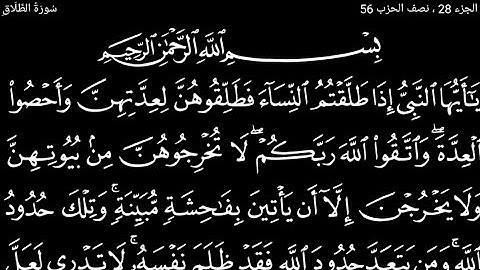 الجزء 28 ، نصف الحزب 56
سُورَةُ الطَّلَاقِ
بِسْمِ اللَّهِ الرَّحْمَٰنِ الرَّحِيمِ
يَـٰٓأَيُّهَا ٱلنَّبِىُّ إِذَا طَلَّقْتُمُ ٱلنِّسَآءَ فَطَلِّقُوهُنَّ لِعِدَّتِهِنَّ وَأَحْصُوا۟
ٱلْعِدَّةَ ۖ وَٱتَّقُوا۟ ٱللَّهَ رَبَّكُمْ ۖ لَا تُخْرِجُوهُنَّ مِنۢ بُيُوتِهِنَّ
وَلَا يَخْرُجْنَ إِلَّآ أَن يَأْتِينَ بِفَـٰحِشَةٍ مُّبَيِّنَةٍ ۚ وَتِلْكَ حُدُودُ
ٱللَّهِ ۚ وَمَن يَتَعَدَّ حُدُودَ ٱللَّهِ فَقَدْ ظَلَمَ نَفْسَهُۥ ۚ لَا تَدْرِى لَعَلَّ